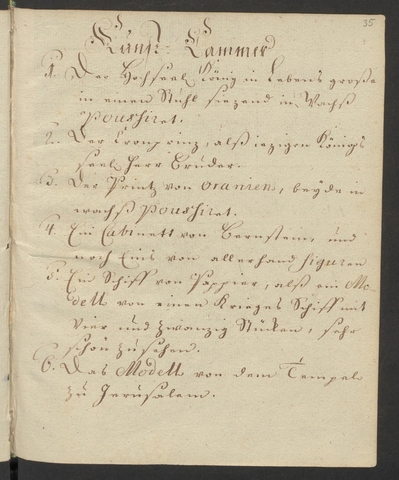 35
Kunst-Cammer
1. Der Hochseel. König in Lebens große
in einen Stuhl sizend in Wachß
Poussiret.
2. Der Cronprinz, alß iezigen Königs
seel. Herr Bruder.
3. Der Printz von Oranien, beyde in
wachß Poussiret.
4. Ein Cabinett von Bernstein, und
noch Eins von allerhand figuren
5. Ein Schiff von Pappier, alß ein Mo-
dell von einen Krieges Schiff mit
vier und zwanzig Stücken, sehr
schön zu sehen.
6. Das Modell von dem Tempel
zu Jerusalem.